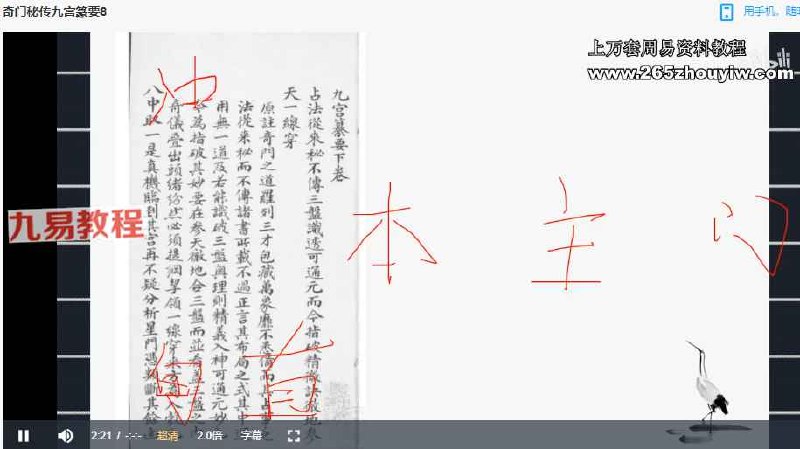 奇门秘传九宫纂要8
用手机，随
上万套周易资料教程
www.265zhouyiw.com
九易教程
九宫纂要下卷
占法從來秘不傳三盤識透可通元而今指破精微訣放地參
天一線穿
原註奇門之道羅列三才包藏萬象靡不悉備而其占
法從來秘而不傳諸書所載不過正言其布局之式其
用無一道及若能識破三盤與理則精義入神可通元
為指破其妙要在參天徹地合三盤而並看蓋三盤之
奇儀疊出頭緒紛然必須提綱挈領一線穿來方
八中取一是真機臨到其宮再不疑分析星門憑
斷其餘
冲
本 主 门
2:21 / -:-:-
超清
2.0倍
字幕